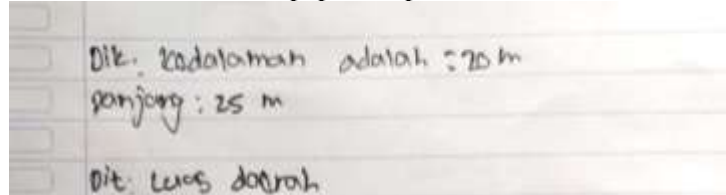 Dik. Kedalaman adalah : 20 m
panjang : 25 m
Dit. Luas daerah